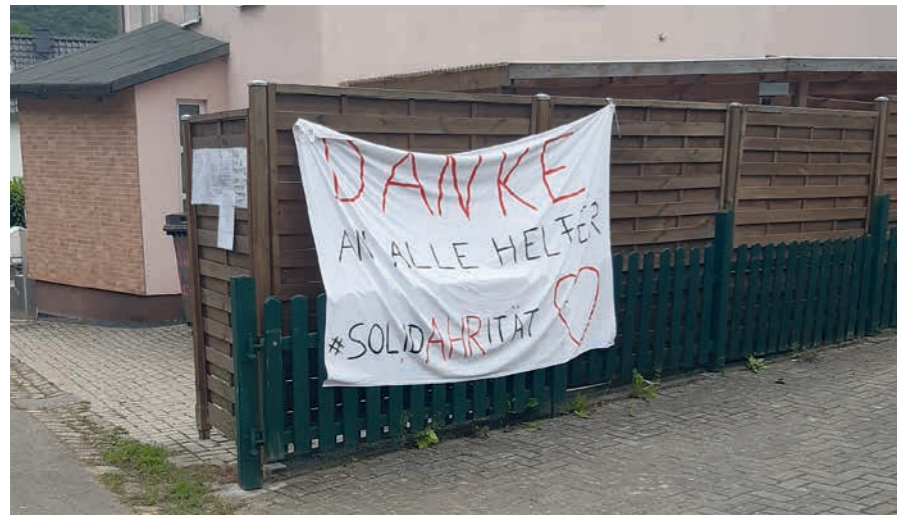 DANKE
AN ALLE HELFER
#SOLIDAHRITÄT